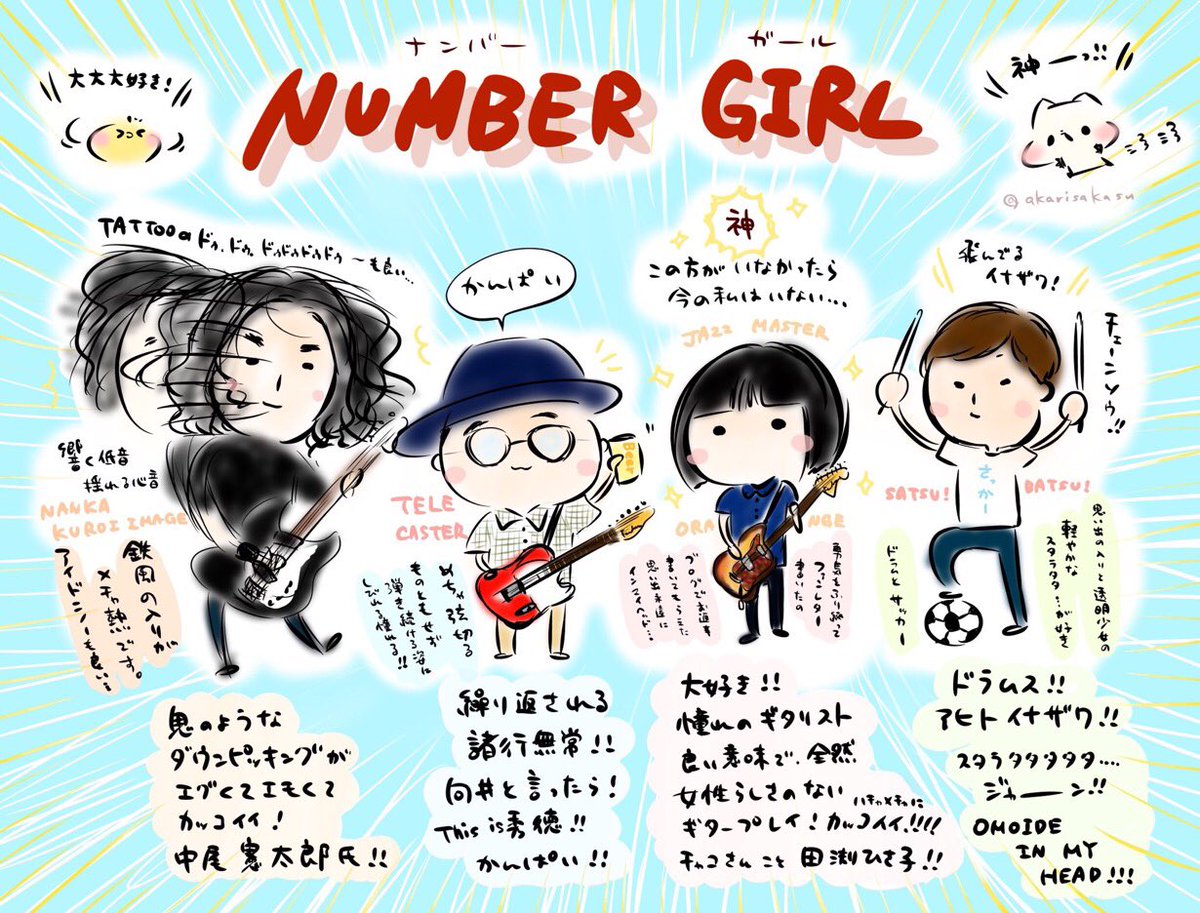 ナンバー ガール
NUMBER GIRL
大大大好き！
神ーっ!!
ころころ
@akarisakasu
TATTOOの ドゥ、ドゥ、ドゥドゥドゥドゥ 〜も良い…
響く低音
揺れる心音
NANKA
KUROI IMAGE
鉄風の入りが
メチャ熱です。
アイドンノーも良い…
鬼のような
ダウンピッキングが
エグくてエモくて
カッコイイ！
中尾憲太郎氏!!
かんぱい
Beer
TELE
CASTER
めちゃ弦切る
ものともせず
弾き続ける姿に
しびれる憧れる!!
繰り返される
諸行無常!!
向井と言ったら！
This is 秀徳!!
かんぱい!!
神
この方がいなかったら
今の私はいない…
JAZZ MASTER
ORA NGE
勇気をふり絞って
ファンレター
書いたの
ブログでお返事
書いてもらえた
思い出永遠に
インマイヘッド…
大好き!!
憧れのギタリスト
良い意味で、全然
女性らしさのない
ハチャメチャに
ギタープレイ！カッコイイ!!!!
チャコさんこと 田渕ひさ子!!
飛んでる
イナザワ！
チェーンソゥ!!
さっかー
SATSU! BATSU!
思い出の入りと透明少女の
軽やかな
スタラタタ…が好き
ドラムとサッカー
ドラムス!!
アヒトイナザワ!!
スタラタタタタタ….
ジャーーン!!
OMOIDE
IN MY
HEAD!!!